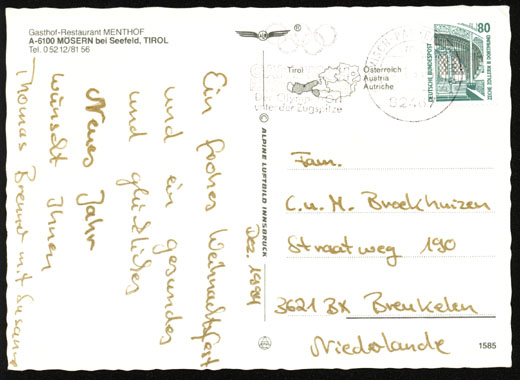 Gasthof-Restaurant MENTHOF
A-6100 MÖSERN bei Seefeld, TIROL
Tel. 0 52 12/81 56
Ein frohes Weihnachtsfest
und ein gesundes
und glückliches
Neues Jahr
wünscht Ihnen
Thomas Brennet mit Susanne
Dez. 1994
© ALPINE LUFTBILD INNSBRUCK
Tirol
Österreich
Austria
Autriche
unter der Zugspitze
80
DEUTSCHE BUNDESPOST
ZECHE ZOLLERN II DORTMUND
Fam.
C. u. M. Broekhuizen
Straatweg 190
3621 BX Breukelen
Niederlande
1585